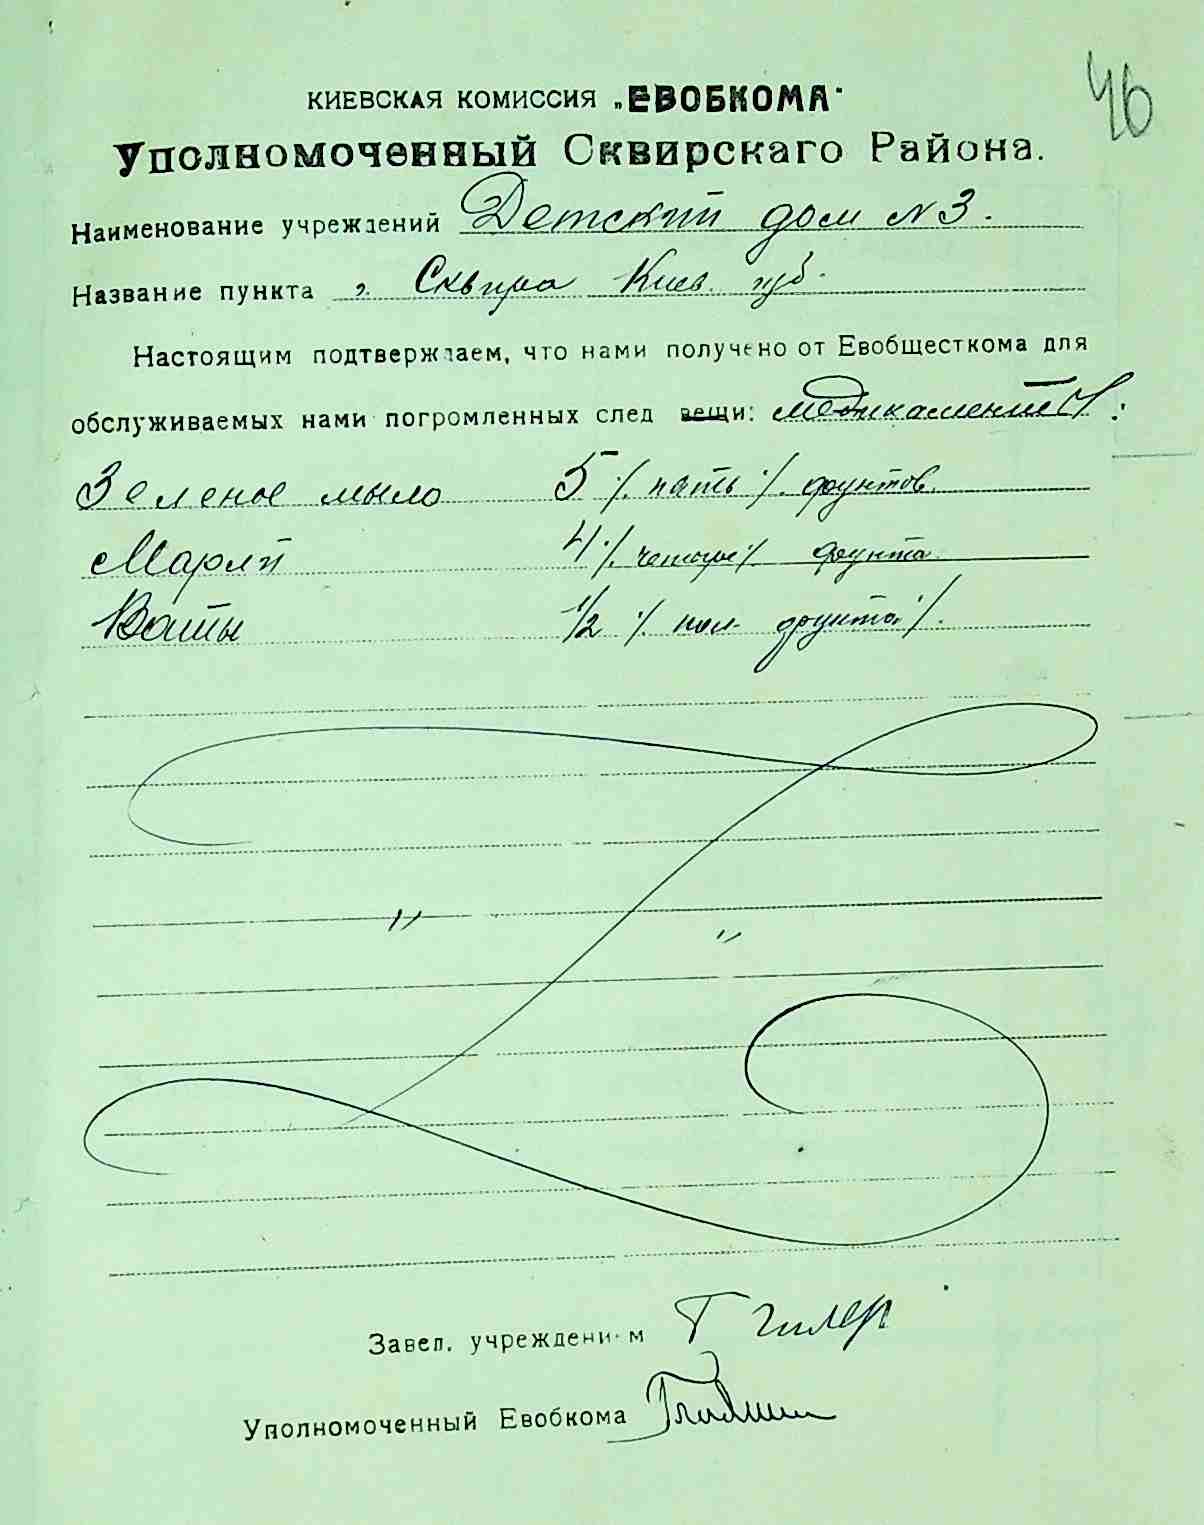 46
КИЕВСКАЯ КОМИССИЯ „ЕВОБКОМА"
Уполномоченный Сквирскаго Района.
Наименование учреждений Детский дом № 3.
Название пункта г. Сквира Киев. губ.
Настоящим подтверждаем, что нами получено от Евобщесткома для
обслуживаемых нами погромленных след вещи: медикаменты:
Зеленое мыло 5 /. пять /. фунтов.
Марли 4 /. четыре /. фунта
Ваты 1/2 /. пол. фунта /.
" "
Завед. учреждением Г Гилер
Уполномоченный Евобкома